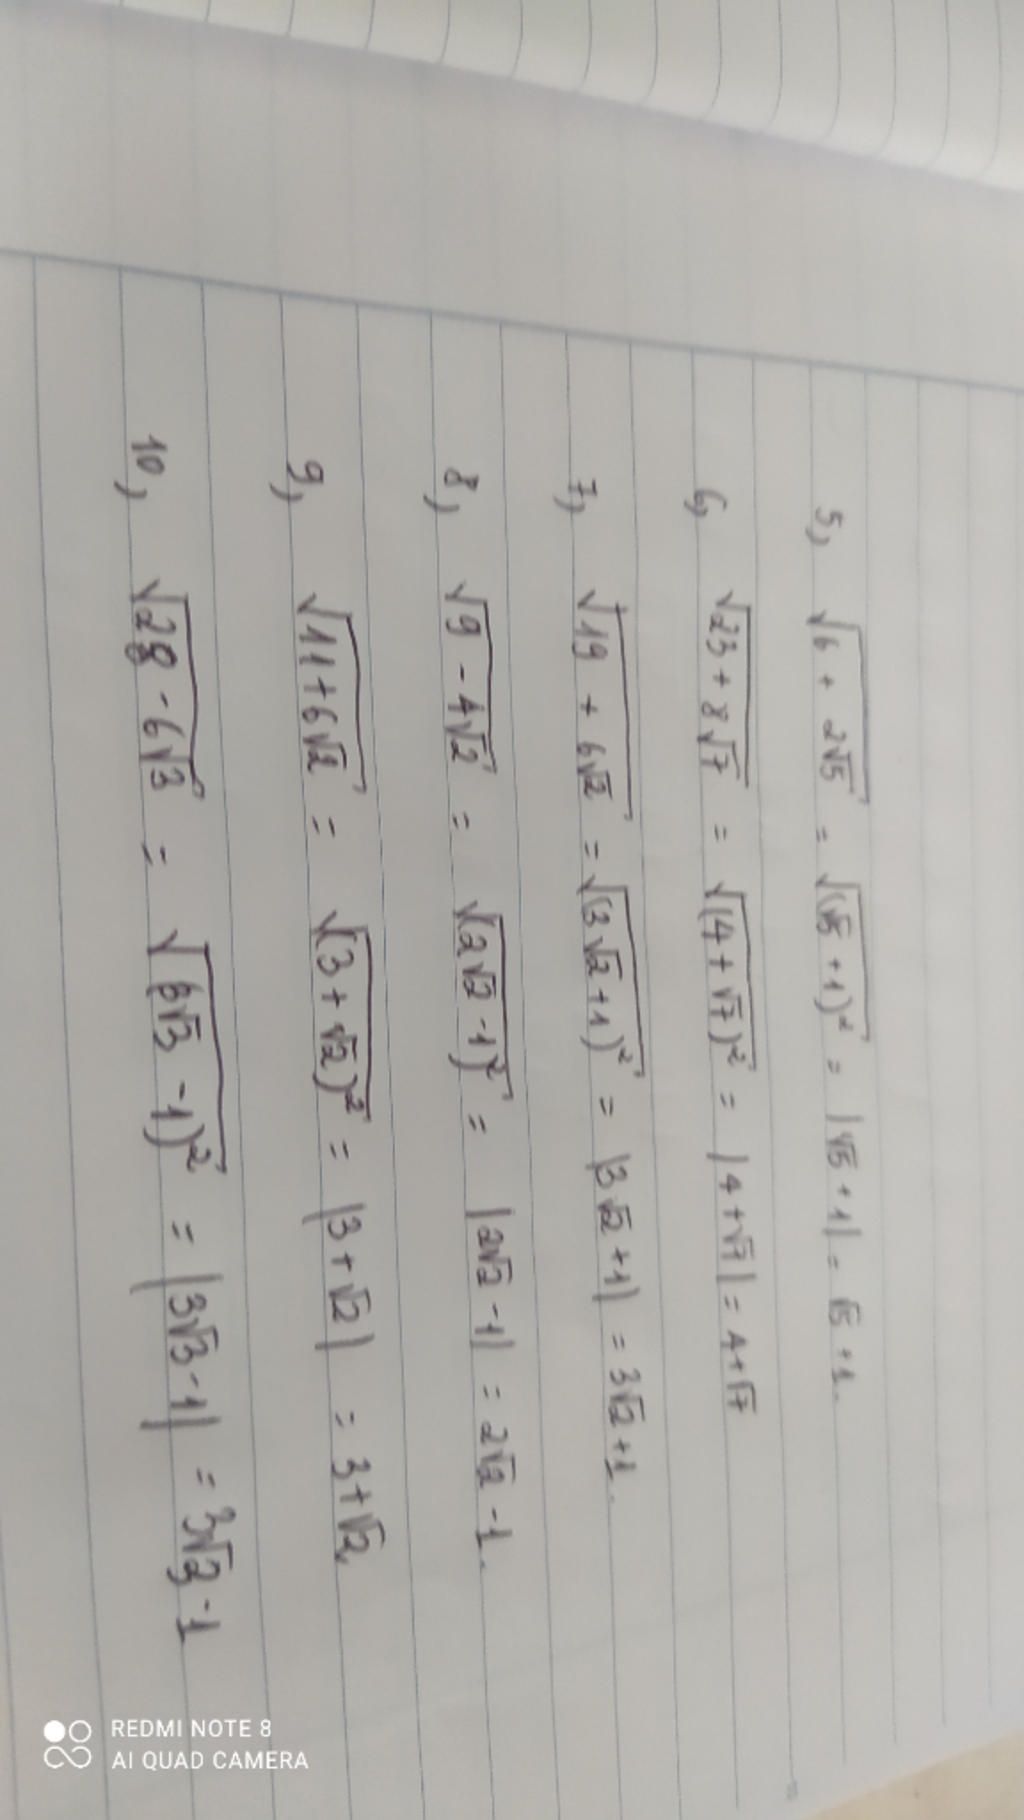 5, √(6 + 2√5) = √((√5 + 1)²) = |√5 + 1| = √5 + 1.
6, √(23 + 8√7) = √((4 + √7)²) = |4 + √7| = 4 + √7
7, √(19 + 6√2) = √((3√2 + 1)²) = |3√2 + 1| = 3√2 + 1.
8, √(9 - 4√2) = √((2√2 - 1)²) = |2√2 - 1| = 2√2 - 1.
9, √(11 + 6√2) = √((3 + √2)²) = |3 + √2| = 3 + √2.
10, √(28 - 6√3) = √((6√3 - 1)²) = |3√3 - 1| = 3√3 - 1
REDMI NOTE 8
AI QUAD CAMERA